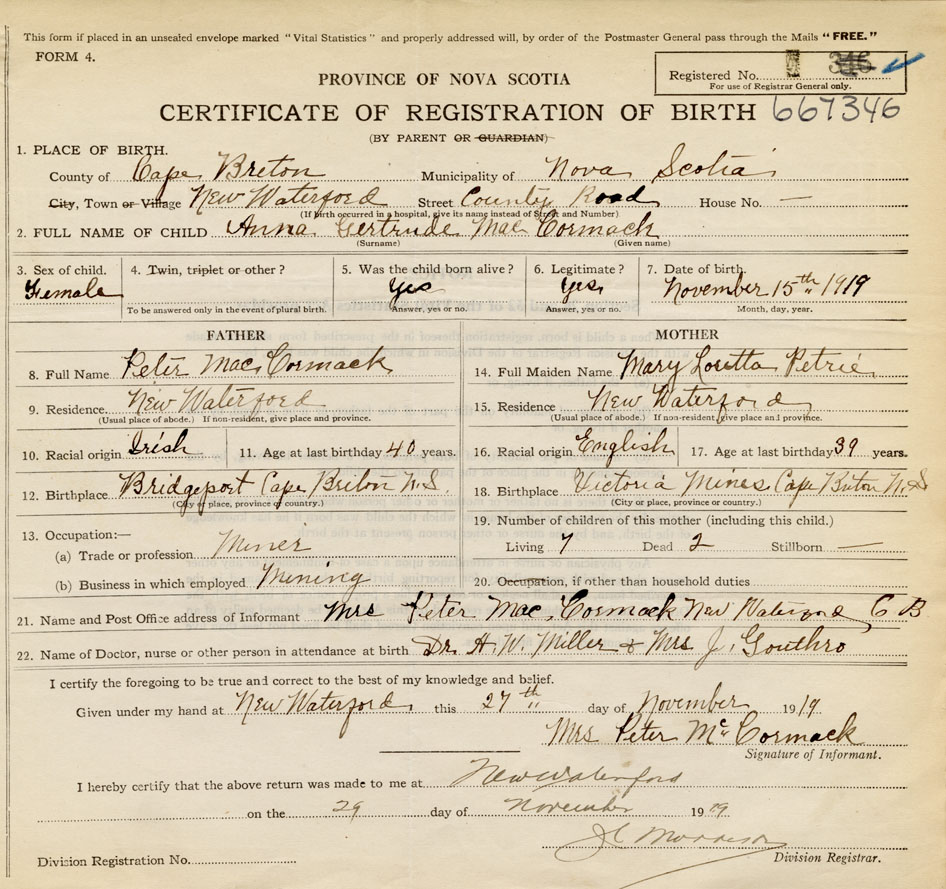 This form if placed in an unsealed envelope marked "Vital Statistics" and properly addressed will, by order of the Postmaster General pass through the Mails "FREE."
FORM 4.
Registered No. 346
For use of Registrar General only.
PROVINCE OF NOVA SCOTIA
CERTIFICATE OF REGISTRATION OF BIRTH 667346
(BY PARENT OR GUARDIAN)
1. PLACE OF BIRTH.
County of Cape Breton Municipality of Nova Scotia
City, Town or Village New Waterford Street County Road House No. —
(If birth occurred in a hospital, give its name instead of Street and Number)
2. FULL NAME OF CHILD Anna Gertrude Mac Cormack
(Surname) (Given name)
3. Sex of child. 4. Twin, triplet or other? 5. Was the child born alive? 6. Legitimate? 7. Date of birth.
Female Yes Yes November 15th 1919
To be answered only in the event of plural birth. Answer, yes or no. Answer, yes or no. Month, day, year.
FATHER MOTHER
8. Full Name Peter Mac Cormack 14. Full Maiden Name Mary Loretta Petrie
9. Residence. New Waterford 15. Residence New Waterford
(Usual place of abode.) If non-resident, give place and province. (Usual place of abode.) If non-resident, give place and province.
10. Racial origin Irish 11. Age at last birthday 40 years. 16. Racial origin English 17. Age at last birthday 39 years.
12. Birthplace Bridgeport Cape Briton N.S. 18. Birthplace Victoria Mines Cape Briton N.S
(City or place, province or country.) (City or place, province or country.)
19. Number of children of this mother (including this child.)
13. Occupation:—
(a) Trade or profession Miner Living 7 Dead 2 Stillborn —
(b) Business in which employed Mining 20. Occupation, if other than household duties
21. Name and Post Office address of Informant Mrs Peter Mac Cormack New Waterford C B
22. Name of Doctor, nurse or other person in attendance at birth Dr. H. W. Miller & Mrs J. Gouthro
I certify the foregoing to be true and correct to the best of my knowledge and belief.
Given under my hand at New Waterford this 27th day of November 1919
Mrs Peter Mc Cormack
Signature of Informant.
I hereby certify that the above return was made to me at New Waterford
on the 29 day of November 1919
Morrison
Division Registration No. Division Registrar.